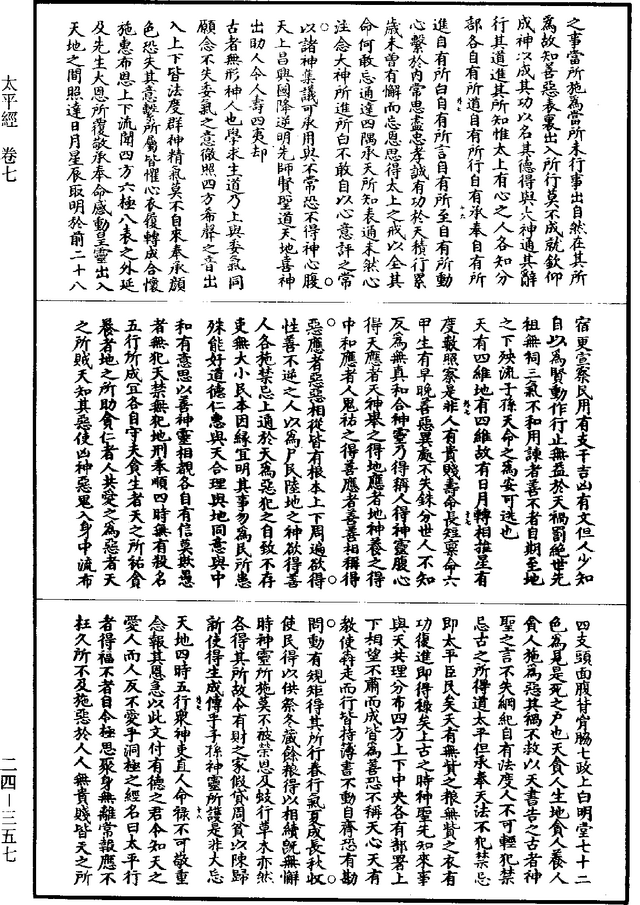 之事當所施為當所未行事出自然在其所
為故知善惡表裏出入所行莫不成就欽仰
成神以成其功以名其德得與六神通其辭
行其道進其所知惟太上有心之人各知分
部各自有所道自有所行自有承奉自有所
進自有所白自有所言自有所至自有所動
心繫於內常思盡忠孝誠有功於天積行累
歲未曾有懈而忘恩思得太上之戒以全其
命何敢忘通達四隅承天所知表通未然心
注念大神所進所白不敢自以心意評之常
以諸神集議可承用與不常恐不得神心腹○
天上昌興國降逆明先師賢聖道天地喜神
出助人令人壽四夷却
古者無形神人也學求生道乃上與委氣同
願念不失委氣之意徹照四方希聲之音出
入上下皆法度群神精氣莫不自來奉承顏
色恐失其意繫所屬皆懼心衣履轉成合懷
施惠布恩上下流聞四方六極八表之外延
及先生大恩所覆敬承奉命感動皇靈出入
天地之間照達日月星辰取明於前二十八
宿更置察民用有支干吉凶有文但人少知
自以為賢動作行止無益於天禍罰絕世先
祖無祠三氣不和用諫者善不者自期至地
之下殃流子孫天命之為安可逃也
天有四維地有四維故有日月轉相推星有
度數照察是非人有貴賤壽命長短稟命六
甲生有早晚善惡異處不失銖分世人不知
反為無真和合神靈乃得稱人得神靈腹心
得天應者天神舉之得地應者地神養之得
中和應者人鬼祐之得善應者善善相稱得○
惡應者惡惡相從皆有根本上下周遍欲得
性善不逆之人以為戶民陸地之神欲得善
人各施禁忌上通於天為惡犯之自致不存
吏無大小民本因緣宜明其事勿為民所患
殊能好道德仁惠與天合理與地同意與中
和有意思以善神靈相覩各自有信莫欺愚
者無犯天禁無犯地刑奉順四時無有殺名
五行所成宜各自守夫貪生者天之所祐貪
養者地之所助貪仁者人共愛之為惡者天
之所賊天知其惡使凶神惡鬼入身中流布
四支頭面腹背胷脇七政上白明堂七十二
色為見是死之尸也天貪人生地貪人養人
貪人施為惡其禍不救以天書告之古者神
聖之言不失綱紀自有法度人不可輕犯禁
忌古之所得道太平但承奉天法不犯禁忌
即太平臣民矣天有無貲之粮無貲之衣有
功復進即得祿矣上古之時神聖先知來事
與天共理分布四方上下中央各有部署上
下相望不肅而成皆為善恐不稱天心天有
教使犇走而行皆持薄書不動自齊恐有勘○
問動有規矩得其所行春行氣夏成長秋收
使民得以供祭冬藏餘粮得以相續既無懈
時神靈所施莫不被榮恩及蚑行草木亦然
各得其所故令有財之家假貸周貧以陳歸
新使得生成傳乎子孫神靈所護是非大忘
天地四時五行眾神吏直人命祿不可敬重
念報其恩急以此文付有德之君令知天之
愛人而人反不愛乎洞極之經名曰太平行
者得福不者自令極思聚身無離常報應不
枉久所不及施惡於人人無貴賤皆天之所
太平經　卷七
二四—三五七